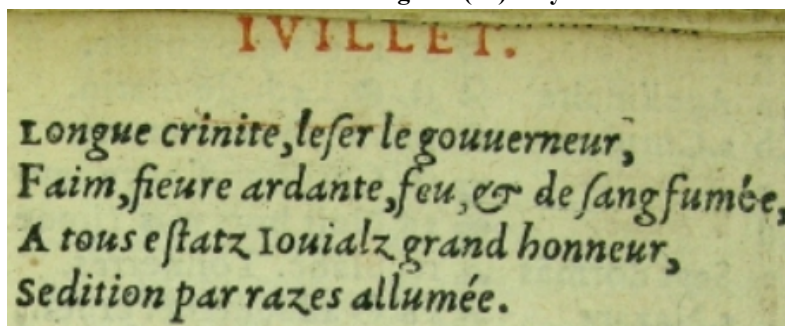 IVILLET.
Longue crinite, leſer le gouuerneur,
Faim, fieure ardante, feu, & de ſang fumée,
A tous eſtatz Iouialz grand honneur,
Sedition par razes allumée.